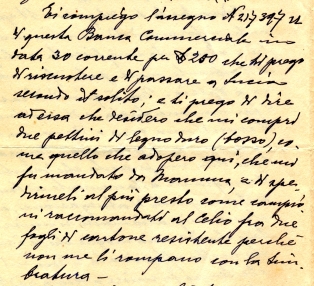 Ti compiego l'assegno N. 21739-7 di
questa Banca Commerciale in
data 30 corrente per $ 200 che ti prego
di riscuotere e di passare a Lucia
secondo il solito; e ti prego di dire
ad essa che desidero che mi compri
due pettini di legno duro (bosso), co-
me quello che adopero qui, che mi
fu mandato da Mamma, e di spe-
dirmeli al più presto come campio-
ni raccomandati al Celio fra due
fogli di cartone resistente perché
non me li rompano con la tim-
bratura —